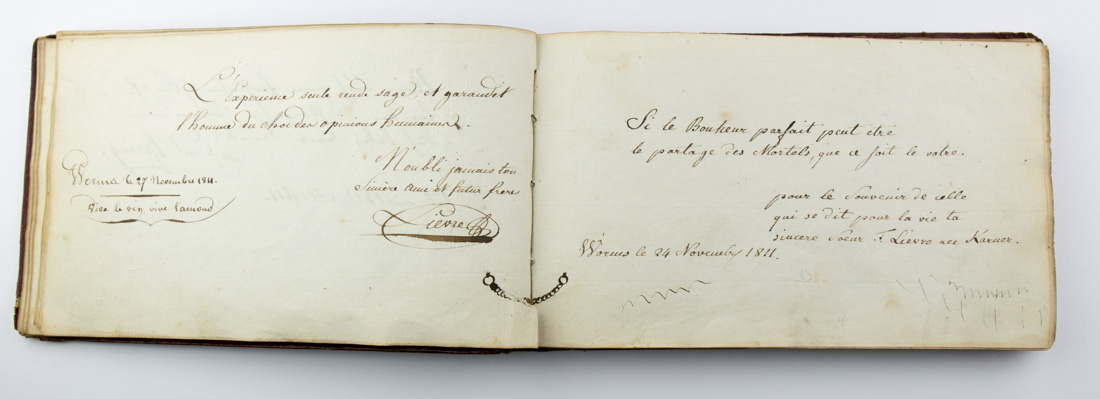 L'Experience seule rende sage, et garandit
l'homme du choc des opinions humaines.
N'oubli jamais ton
Sincère ami et futur frere
Lievre
Worms le 27 Novembre 1811.
Vive le vin, vive l'amour
Si le Bonheur parfait peut etre
le partage des Mortels, que ce soit le votre.
pour le Souvenir de celle
qui se dit pour la vie ta
sincere Soeur F. Lievre nee Karner.
Worms le 24 Novembre 1811.